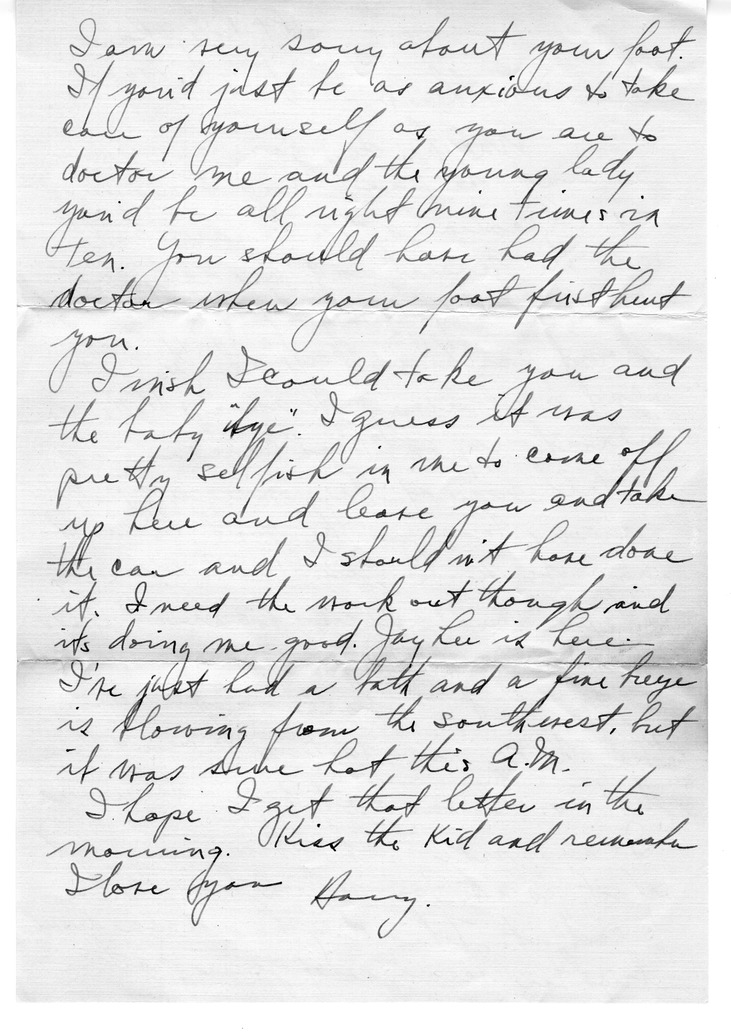 I am very sorry about your foot.
If you'd just be as anxious to take
care of yourself as you are to
doctor me and the young lady
you'd be all right nine times in
ten. You should have had the
doctor when your foot first hurt
you.
I wish I could take you and
the baby "bye". I guess it was
pretty selfish in me to come off
up here and leave you and take
the car and I shouldn't have done
it. I need the work out though and
its doing me good. Jay Lee is here.
I've just had a bath and a fine breeze
is blowing from the southwest, but
it was sure hot this A.M.
I hope I get that letter in the
morning. Kiss the kid and remember
I love you Harry.